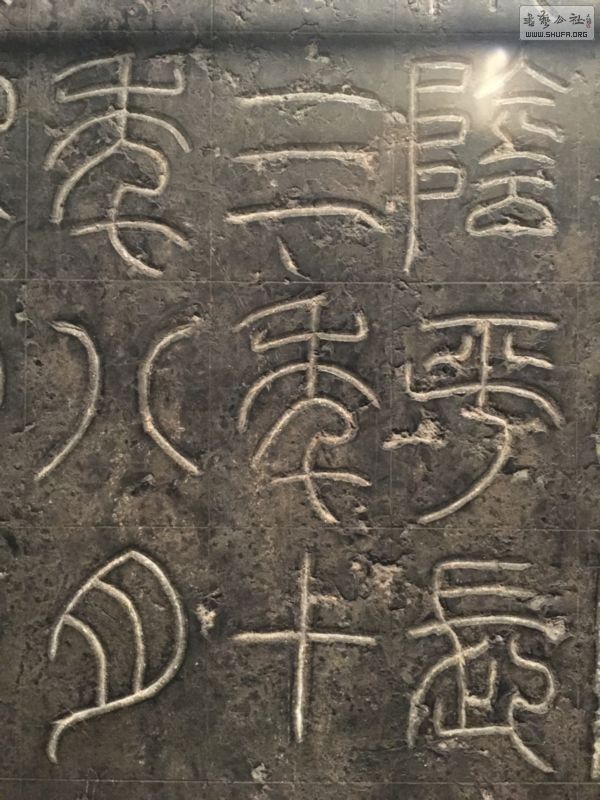 陰平長
三年十
年八月
書藝公社
WWW.SHUFA.ORG